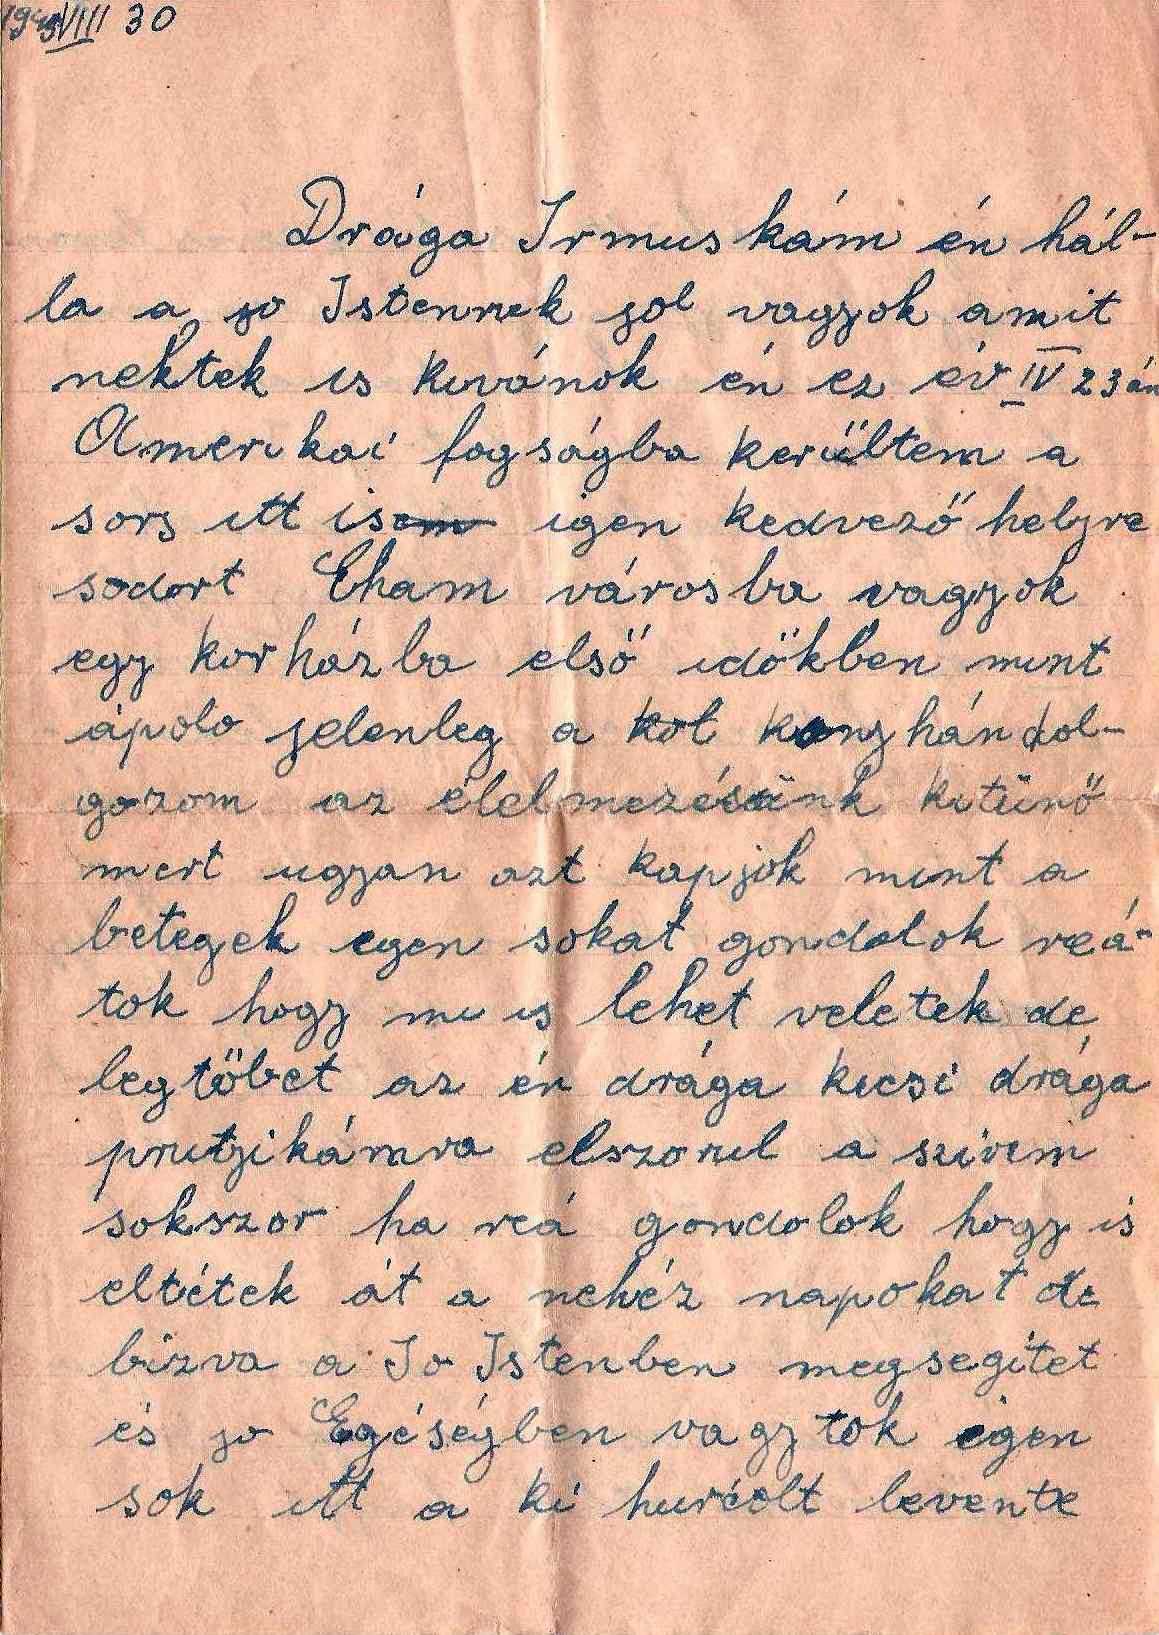 1945 VIII 30
Drága Irmuskám én hál-
la a jo Istennek jol vagyok amit
nektek is kivánok én ez év IV 23án
Amerikai fogságba kerültem a
sors itt is igen kedvező helyre
sodort Cham városba vagyok
egy korházba első időkben mint
ápolo jelenleg a konyhán dol-
gozom az élelmezésünk kitünő
mert ugyan azt kapjok mint a
betegek egen sokat gondolok reá-
tok hogy mi is lehet veletek de
legtöbet az én drága kicsi drága
prutyikámra elszorul a szivem
sokszor ha reá gondolok hogy is
eltétek át a nehéz napokat de
bizva a Jo Istenben megsegitet
és jo Egéségben vagytok igen
sok itt a ki hurcolt levente